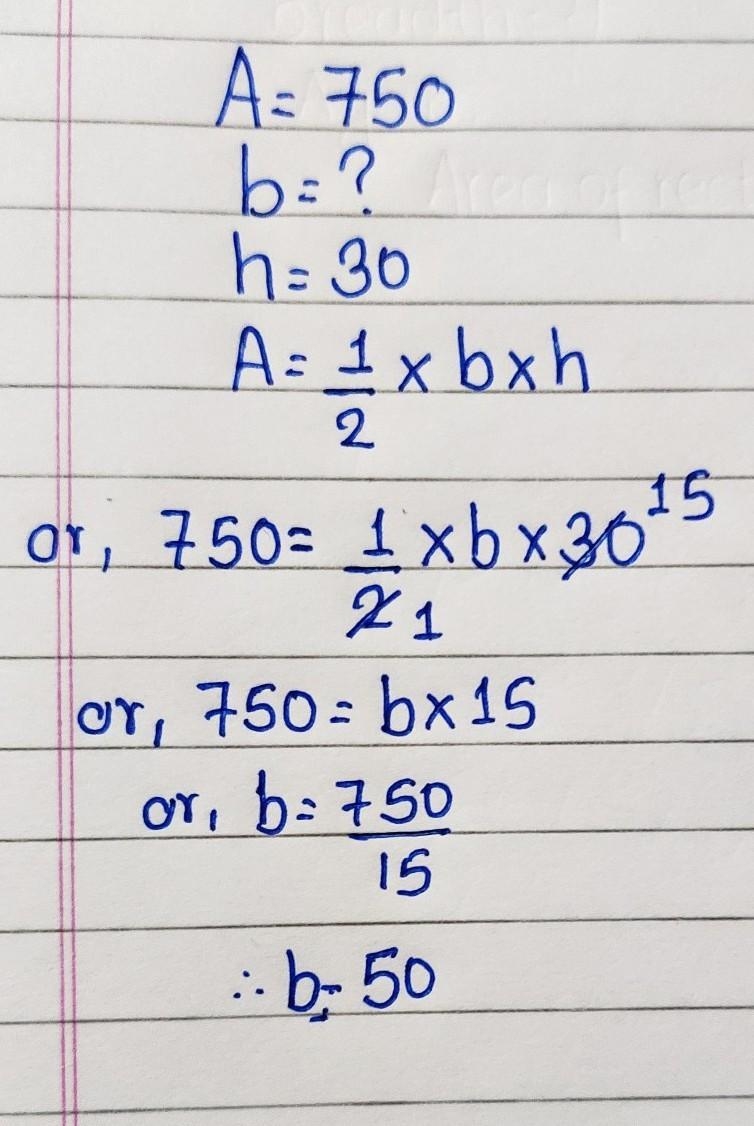 A = 750
b = ?
h = 30
A = 1/2 × b × h
or, 750 = 1/2 1 × b × 30 15
or, 750 = b × 15
or, b = 750/15
∴ b = 50